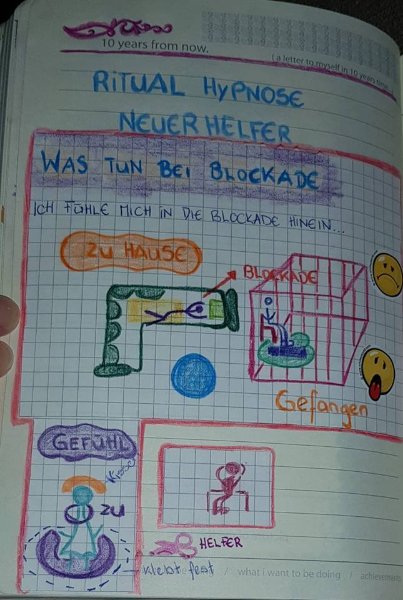 10 years from now.
( a letter to myself in 10 years time
RITUAL HYPNOSE
NEUER HELFER
WAS TUN BEI BLOCKADE
ICH FÜHLE MICH IN DIE BLOCKADE HINEIN...
ZU HAUSE
BLOCKADE
Gefangen
GEFÜHL
ZU
HELFER
klebt fest
/ what i want to be doing / achievements